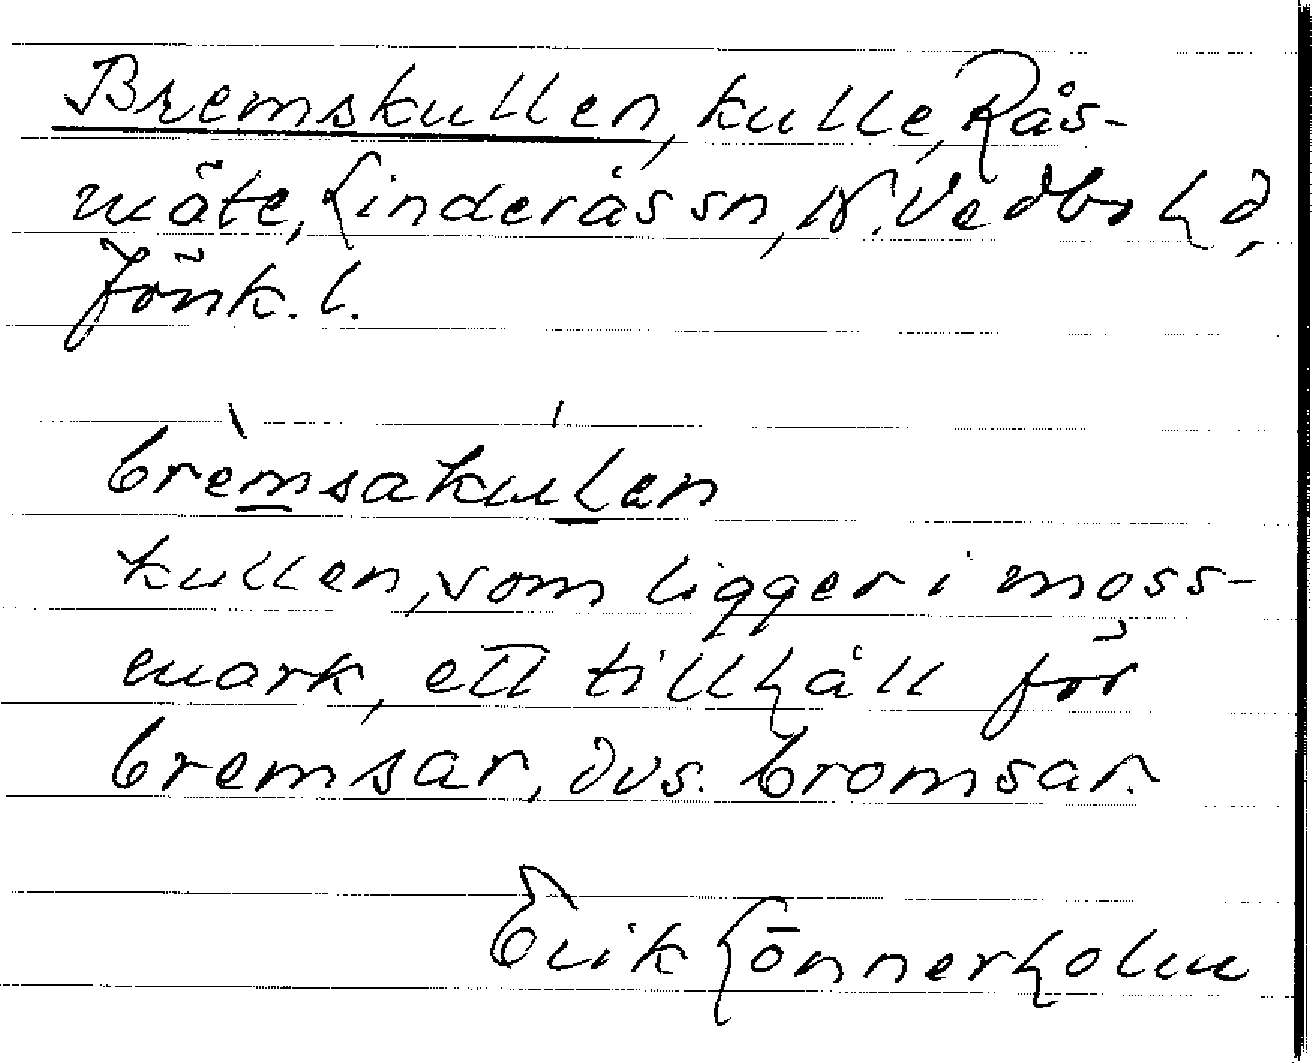 Bremskullen, kulle, Rås-
mäte, Linderås sn, N. Vedbo hd,
Jönk. l.
brèmsakulen
kullen, som ligger i moss-
mark, ett tillhåll för
bremsar, dvs. bromsar.
Erik Lönnerholm